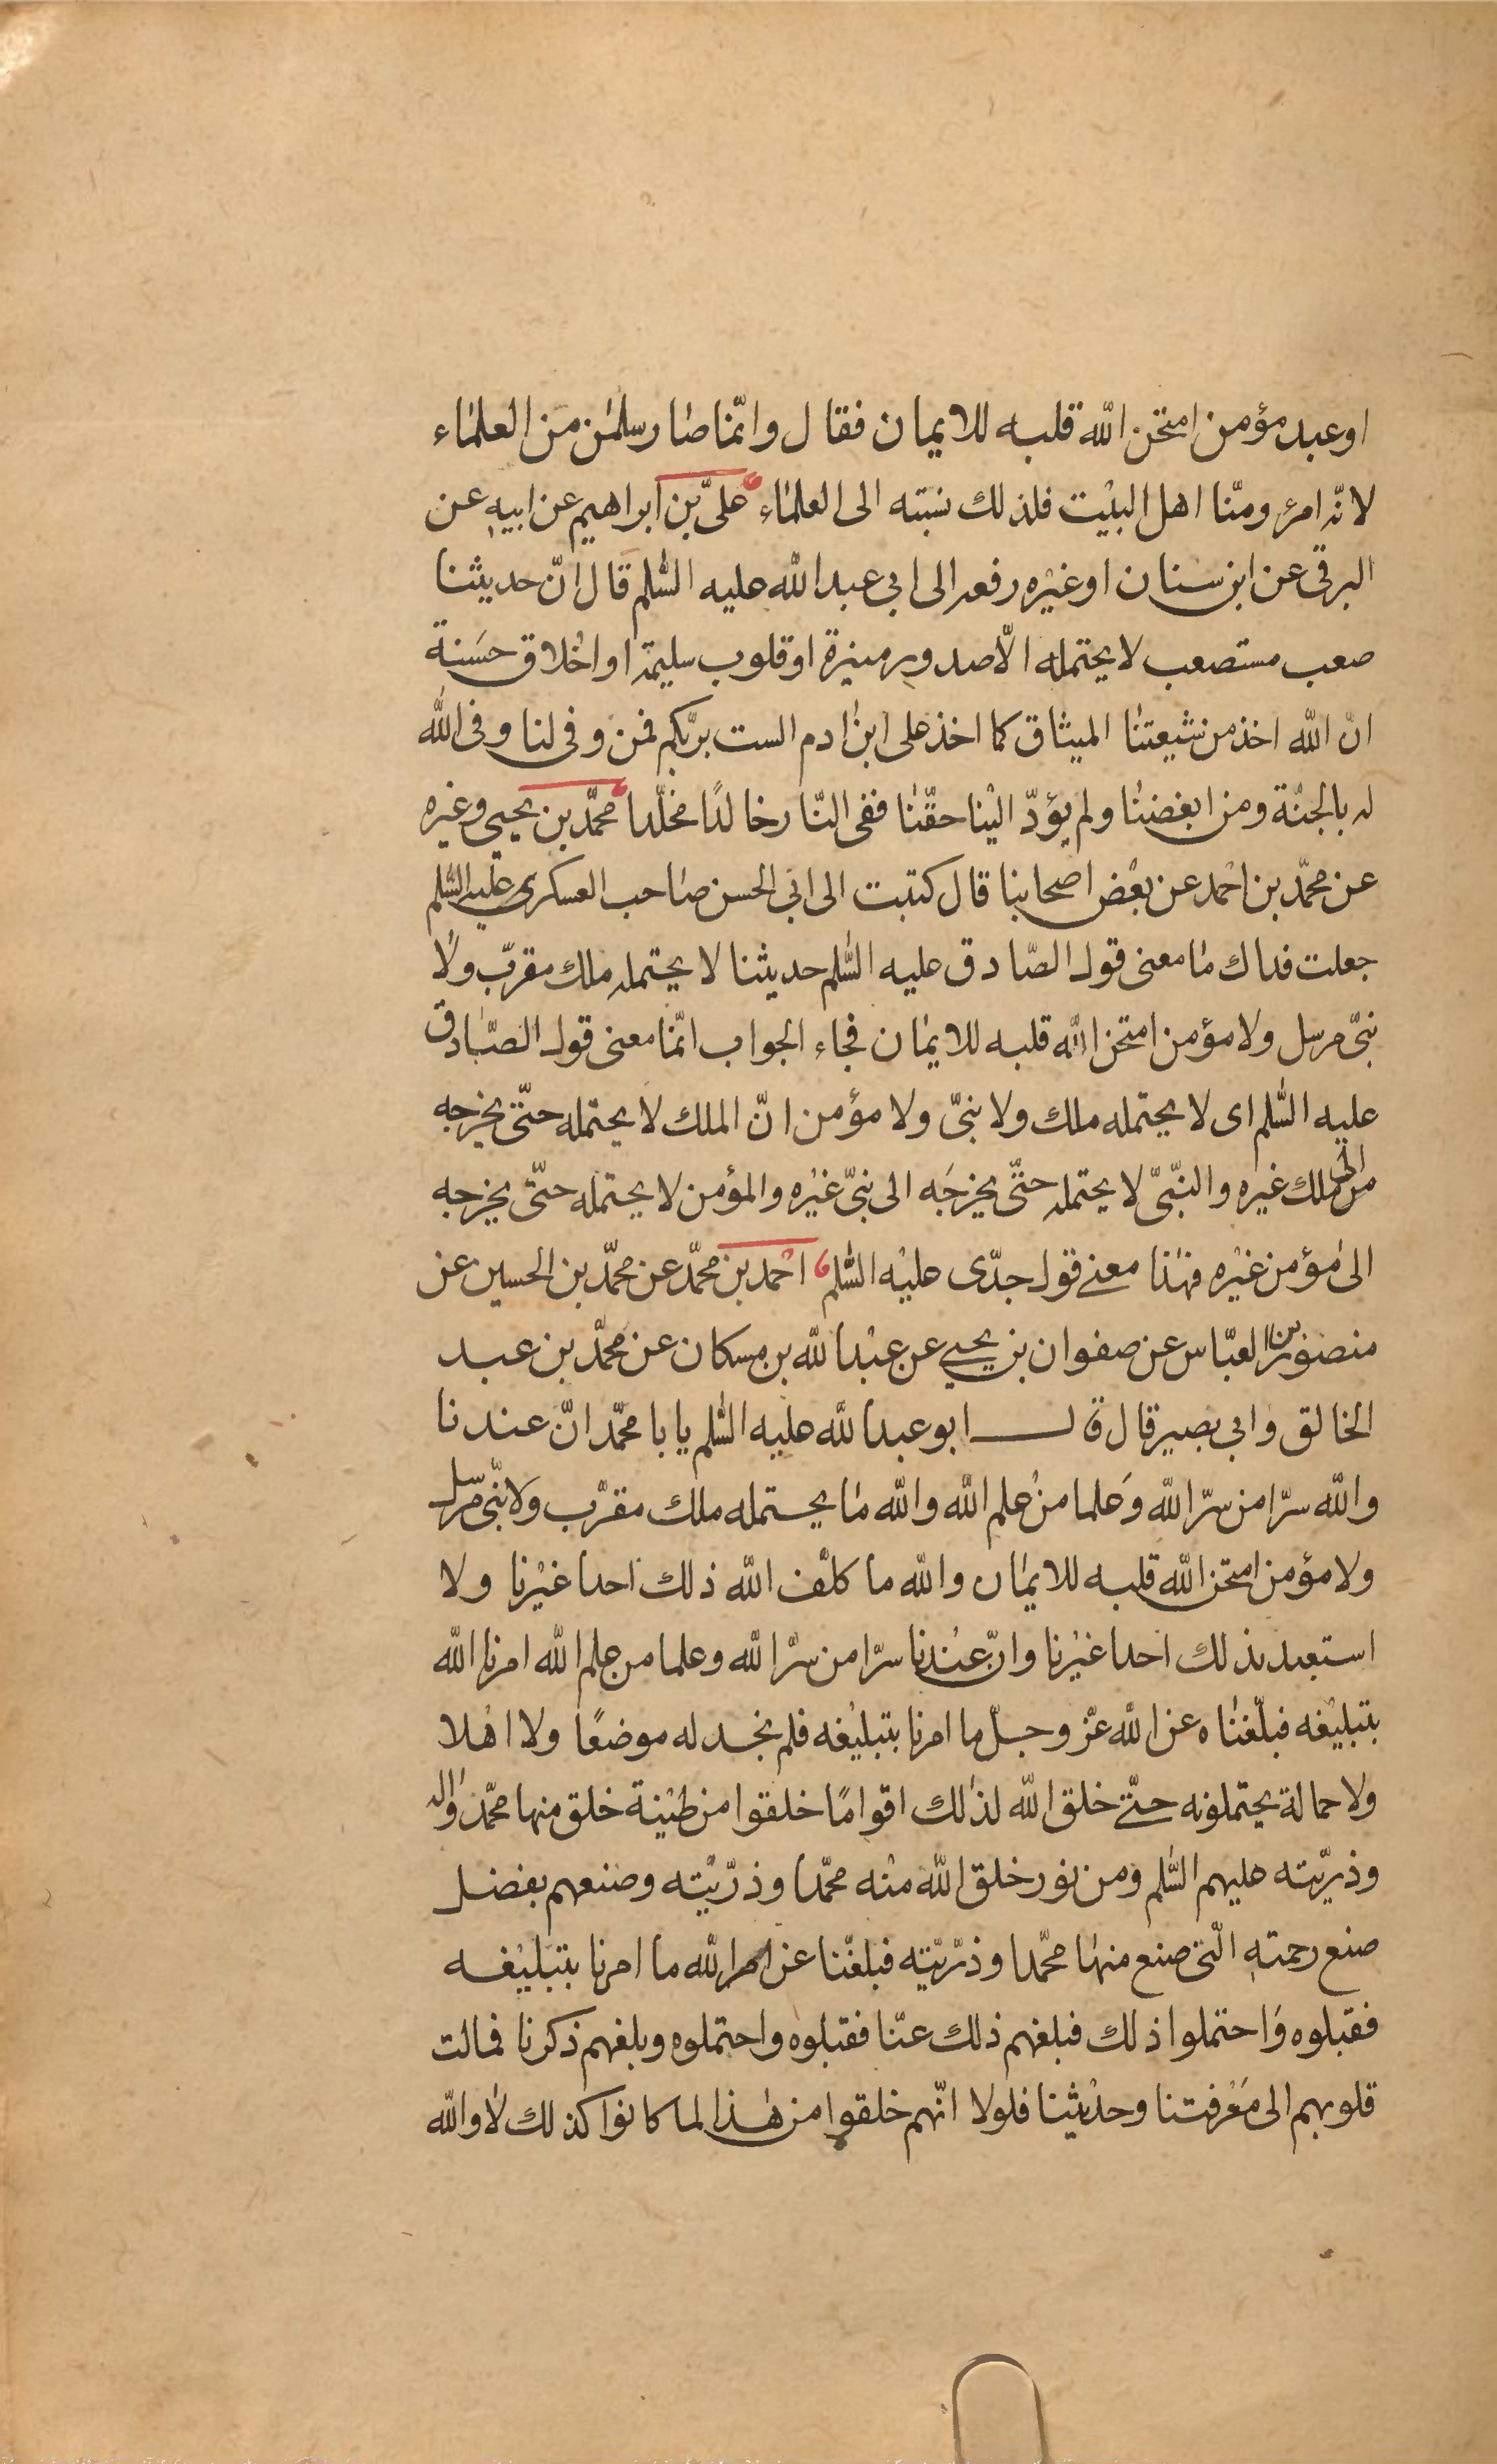 او عبد مؤمن امتحن الله قلبه للايمان فقال وانّما صار سلمٰن من العلمٰاء
لانّه امرؤ ومنّا اهل البيْت فلذلك نسَبته الى العلمٰاء علىّ بن ابراهيم عن ابيهِ عن
البرقى عن ابن سنان او غيْره رفعه الى ابى عبد الله عليه السّٰلم قال انّ حديثنا
صعب مستصعب لا يحتمله الّا صدور منيرة او قلوب سليمة او اخْلاق حسَنة
انّ الله اخذ من شيعتنٰا الميثاق كما اخذ على ابن ادم الست بربّكم فمن وفى لنا وفى الله
له بالجنّة ومن ابغضنٰا ولم يؤدّ اليْنا حقّنٰا ففى النّار خالدًا مخلّدا محمّد بن يحيى وغيره
عن محمّد بن احْمد عن بعْض اصحابنا قال كتبت الى ابى الحسن صٰاحب العسكرى عليه السّٰلم
جعلت فداك مٰا معنى قول الصّادق عليه السّٰلم حديثنا لا يحتمله ملك مقرّب ولٰا
نبىّ مرسل ولا مؤمن امتحن الله قلبه للايمٰان فجٰاء الجواب انّما معنى قول الصّٰادق
عليه السّٰلم اى لا يحتمله ملك ولا نبىّ ولا مؤمن انّ الملك لا يحتمله حتّى يخرجه
الى ملك غيره والنّبىّ لا يحتمله حتّى يخرجَه الى نبىّ غيْره والمؤمن لا يحتمله حتّى يخرجه
الىٰ مؤمن غيْره فهٰذا معنى قول جدّى عليْه السّٰلم احْمد بن محمّد عن محمّد بن الحسين عن
منصور بن العبّاس عن صفوان بن يحيى عن عبْد الله بن مسكان عن محمّد بن عبد
الخالق وابى بصير قال قال ابو عبد الله عليه السّٰلم يا با محمّد انّ عندنا
والله سرّا من سرّ الله وَعلما منْ علم الله والله مٰا يحتمله ملك مقرّب ولا نبّى مرسل
ولا مؤمن امتحن الله قلبه للايمٰان والله ما كلّف الله ذلك احدا غيْرنا ولا
استعبد بذلك احدا غيْرنا وانّ عنْدنا سرّا من سرّ الله وعلما من علم الله امرنا الله
بتبليْغه فبلّغنٰاه عن الله عزّ وجلّ ما امرنا بتبليْغه فلم نجد له موضعًا ولا اهْلا
ولا حمالة يحتملونه حتّى خلق الله لذٰلك اقوامًا خلقوا من طيْنة خلق منها محمّد واٰله
وذريّته عليهم السّٰلم ومن نور خلق الله منْه محمّدا وذرّيّته وصنعهم بفضل
صنع رحمتهِ الّتى صنع منهٰا محمّدا وذرّيّته فبلّغنا عن الله ما امرنا بتبليْغه
فقبلوه وَاحتملوا ذلك فبلغهم ذلك عنّا فقبلوه واحتملوه وبلغهم ذكرنا فمالت
قلوبهم الى مَعْرفتنا وحدْيثنا فلولا انّهم خلقوا من هٰذا لما كانوا كذلك لٰا والله